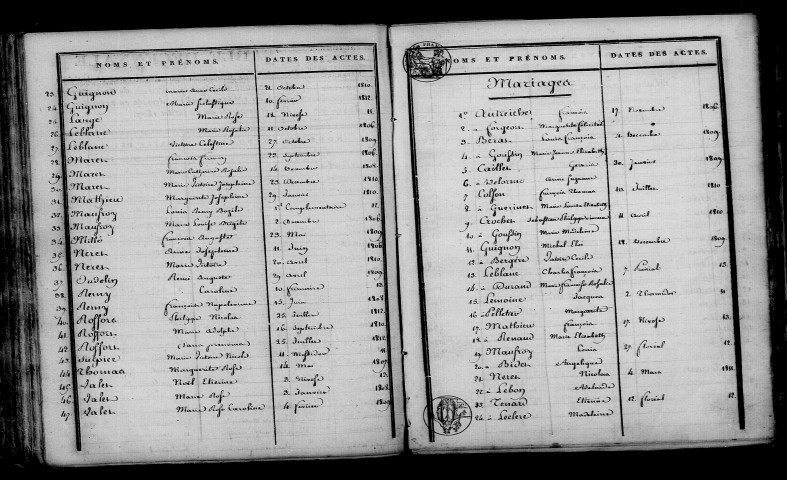 NOMS ET PRÉNOMS. DATES DES ACTES.
23. Guignon Marie Anne Cécile 21 Octobre 1810.
24. Guignon Marie Scholastique 10 février 1812.
25. Lange Marie Rose 12 Nivose 11.
26. Leblanc Marie Rosalie 11 Octobre 1806.
27. Leblanc Victoire Celestine 27 Octobre 1809.
28. Maret 23 Septembre 1806.
29. Maret Marie Catherine Rosalie 14 Decembre 1808.
30. Maret Marie Victoire Josephine 23 Decembre 1810.
31. Mathieu Marguerite Josephine 29 Janvier 1810.
32. Maufroy Louis Remy Bazile Complementaire 12.
33. Maufroy Marie Louise Brigitte 2 Decembre 1806.
34. françois Auguste 23 Mai 1809.
35. Neret Anne Josephine 11 Juin 1806.
36. Neret Marie Victoire 20 Avril 1810.
37. Oudelin Remi Auguste 29 Avril 1809.
38. Remy Caroline 10 frimaire 13.
39. Remy Napoleonne 15 Juin 1808.
40. Roffort Philippe Nicolas 25 Juillet 1812.
41. Roffort Marie Adolphe 16 Septembre 1810.
42. Roffort Sans prenoms 25 Juillet 1812.
43. Sulpice Marie Victoire Nicole 11 Messidor 11.
44. Thomas Marguerite Rose 14 Mai 1807.
45. Valet Noël Etienne 3 Nivose 13.
46. Valet Marie Rose 3 Janvier 1808.
47. Valet Marie Rose Caroline 4 février 1809.
NOMS ET PRÉNOMS. DATES DES ACTES.
Mariages
1. Autreiche françois 17 Novembre 1806.
2. à forgeon Marguerite félicité
3. Berat Louis françois 4 Decembre 1809.
4. à Gouffin Marie Jeanne Elisabeth
5. Caillet Gervais 30 Janvier 1809.
6. à Delorme Anne Suzanne
7. Colson françois Thomas 10 Juillet 1810
8. à Guerinet Marie Louise Elisabeth
9. Crochet Sebastien Philippe 11 Avril 1810.
10. à Gouffin Marie Madeleine
11. Guignon Michel Eloi 18 Decembre 1809.
12. à Bergère Victoire Cecile
13. Leblanc Charles françois 7 Pluvial 13.
14. à Durand Marie françoise Rosalie
15. Lemoine Jacques 2 Thermidor 11
16. à Pelletre Marguerite
17. Mathieu françois 17 Nivose 13.
18. à Renaud Marie Elisabeth
19. Maufroy Louis 27 floreal 12.
20. à Bidet Angelique
21. Neret Nicolas 4 Mars 1811.
22. à Lebon Adelaide
23. Tenard Etienne 12 floreal 12.
24. à Leclere Madeleine